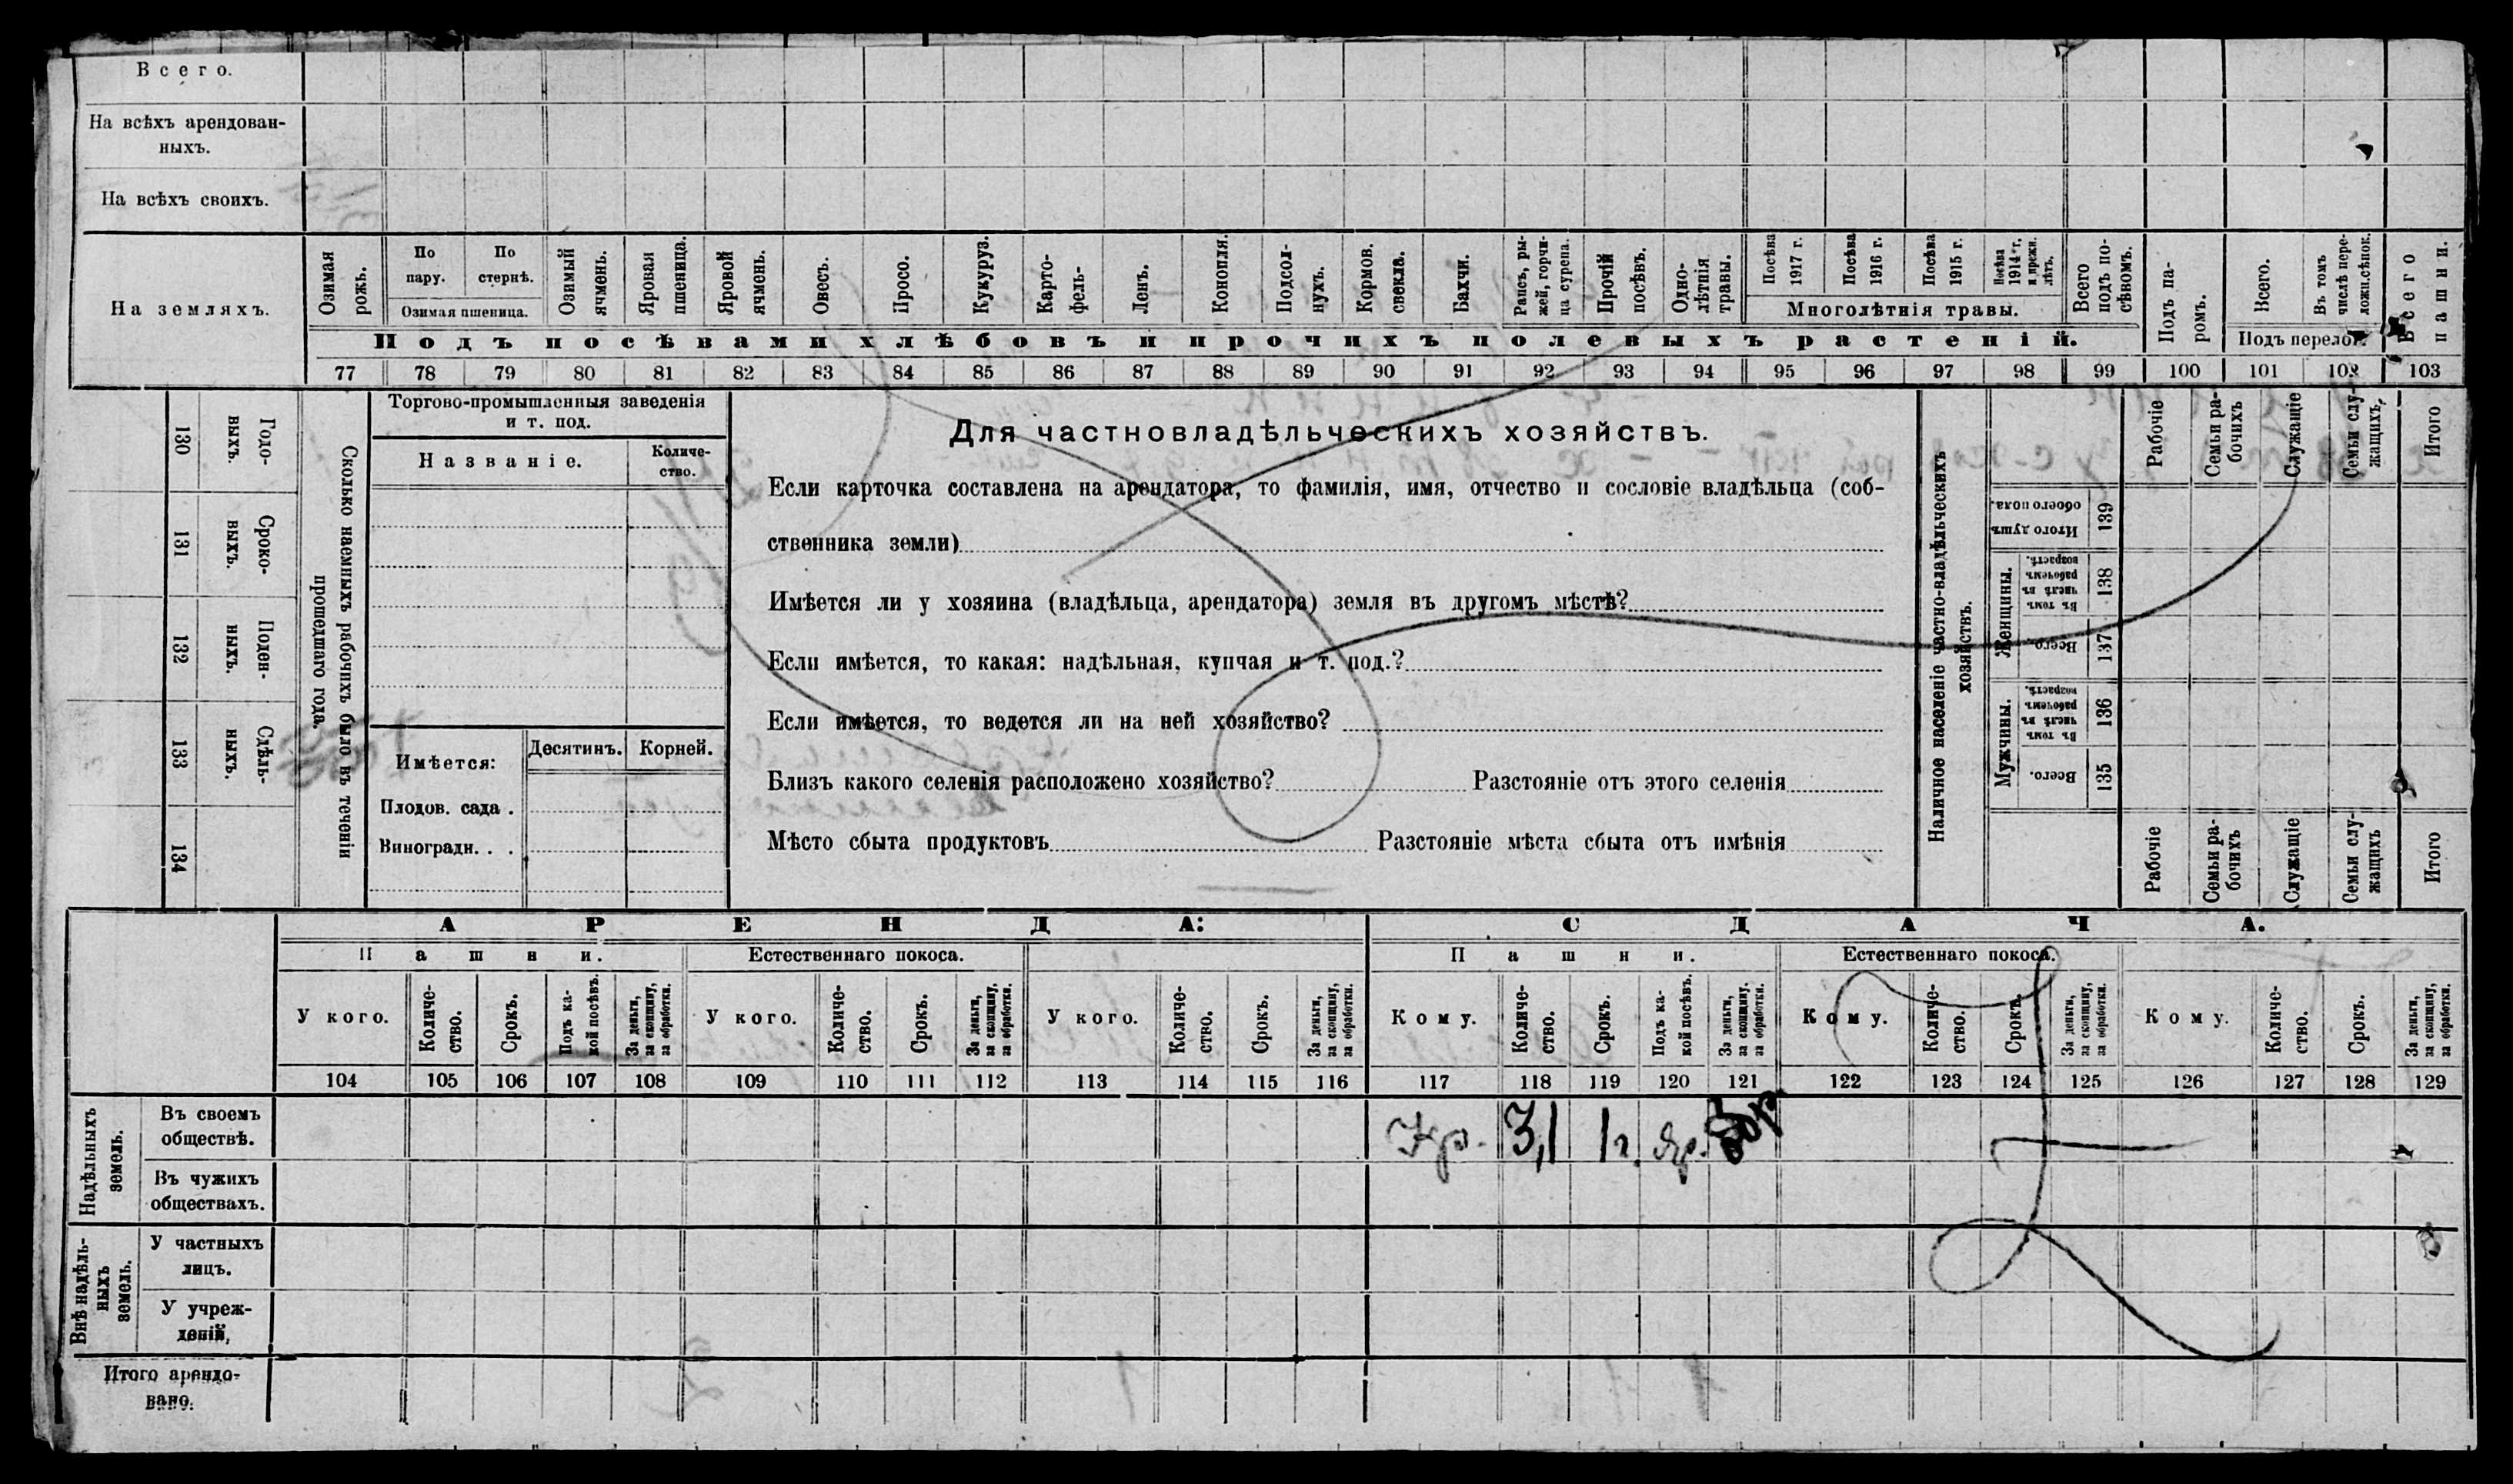 Всего.
На всѣхъ арендован-
ныхъ.
На всѣхъ своихъ.
На земляхъ.
Озимая рожь.
По пару.
По стернѣ.
Озимая пшеница.
Озимый ячмень.
Яровая пшеница.
Яровой ячмень.
Овесъ.
Просо.
Кукуруз.
Карто-
фель-
Ленъ.
Конопля.
Подсол-
нухъ.
Кормов. свекла.
Бахчи.
Рапсъ, ры-
жей, горчи-
ца сурепа.
Прочій посѣвъ.
Одно-
лѣтнія травы.
Посѣва 1917 г.
Посѣва 1916 г.
Посѣва 1915 г.
Посѣва 1914 г. и прежн. лѣтъ.
Многолѣтнія травы.
Всего подъ по-
сѣвомъ.
Подъ па-
ромъ.
Всего.
Въ томъ числѣ пере-
ложн.сѣнок.
Подъ перелог.
Всего пашни.
Подъ посѣвами хлѣбовъ и прочихъ полевыхъ растеній.
77 78 79 80 81 82 83 84 85 86 87 88 89 90 91 92 93 94 95 96 97 98 99 100 101 102 103
130 Годо-
выхъ.
131 Сроко-
выхъ.
132 Поден-
ныхъ.
133 Сдѣль-
ныхъ.
134
Сколько наемныхъ рабочихъ было въ теченіи
прошедшаго года.
Торгово-промышленныя заведенія
и т. под.
Названіе.
Количе-
ство.
Имѣется:
Десятинъ.
Корней.
Плодов. сада .
Виноградн. . .
Для частновладѣльческихъ хозяйствъ.
Если карточка составлена на арендатора, то фамилія, имя, отчество и сословіе владѣльца (соб-
ственника земли)
Имѣется ли у хозяина (владѣльца, арендатора) земля въ другомъ мѣстѣ?
Если имѣется, то какая: надѣльная, купчая и т. под.?
Если имѣется, то ведется ли на ней хозяйство?
Близъ какого селенія расположено хозяйство? Разстояніе отъ этого селенія
Мѣсто сбыта продуктовъ Разстояніе мѣста сбыта отъ имѣнія
Наличное населеніе частно-владѣльческихъ
хозяйствъ.
Рабочіе
Семьи ра-
бочихъ
Служащіе
Семьи слу-
жащихъ.
Итого
Итого душъ обоего пола.
139
Женщины.
Въ томъ числѣ въ рабочемъ возрастѣ.
138
Всего.
137
Мужчины.
Въ томъ числѣ въ рабочемъ возрастѣ.
136
Всего.
135
Рабочіе
Семьи ра-
бочихъ
Служащіе
Семьи слу-
жащихъ
Итого
АРЕНДА:
СДАЧА.
Пашни.
Естественнаго покоса.
Пашни.
Естественнаго покоса.
У кого.
Количе-
ство.
Срокъ.
Подъ ка-
кой посѣвъ.
За деньги, за скопщину, за обработки.
У кого.
Количе-
ство.
Срокъ.
За деньги, за скопщину, за обработки.
У кого.
Количе-
ство.
Срокъ.
За деньги, за скопщину, за обработки.
Кому.
Количе-
ство.
Срокъ.
Подъ ка-
кой посѣвъ.
За деньги, за скопщину, за обработки.
Кому.
Количе-
ство.
Срокъ.
За деньги, за скопщину, за обработки.
Кому.
Количе-
ство.
Срокъ.
За деньги, за скопщину, за обработки.
104 105 106 107 108 109 110 111 112 113 114 115 116 117 118 119 120 121 122 123 124 125 126 127 128 129
Надѣльныхъ
земель.
Въ своемъ
обществѣ.
Кр. 3,1 1 г. Яр.
Въ чужихъ
обществахъ.
Внѣ надѣль-
ныхъ
земель.
У частныхъ
лицъ.
У учреж-
деній,
Итого арендо-
вано.